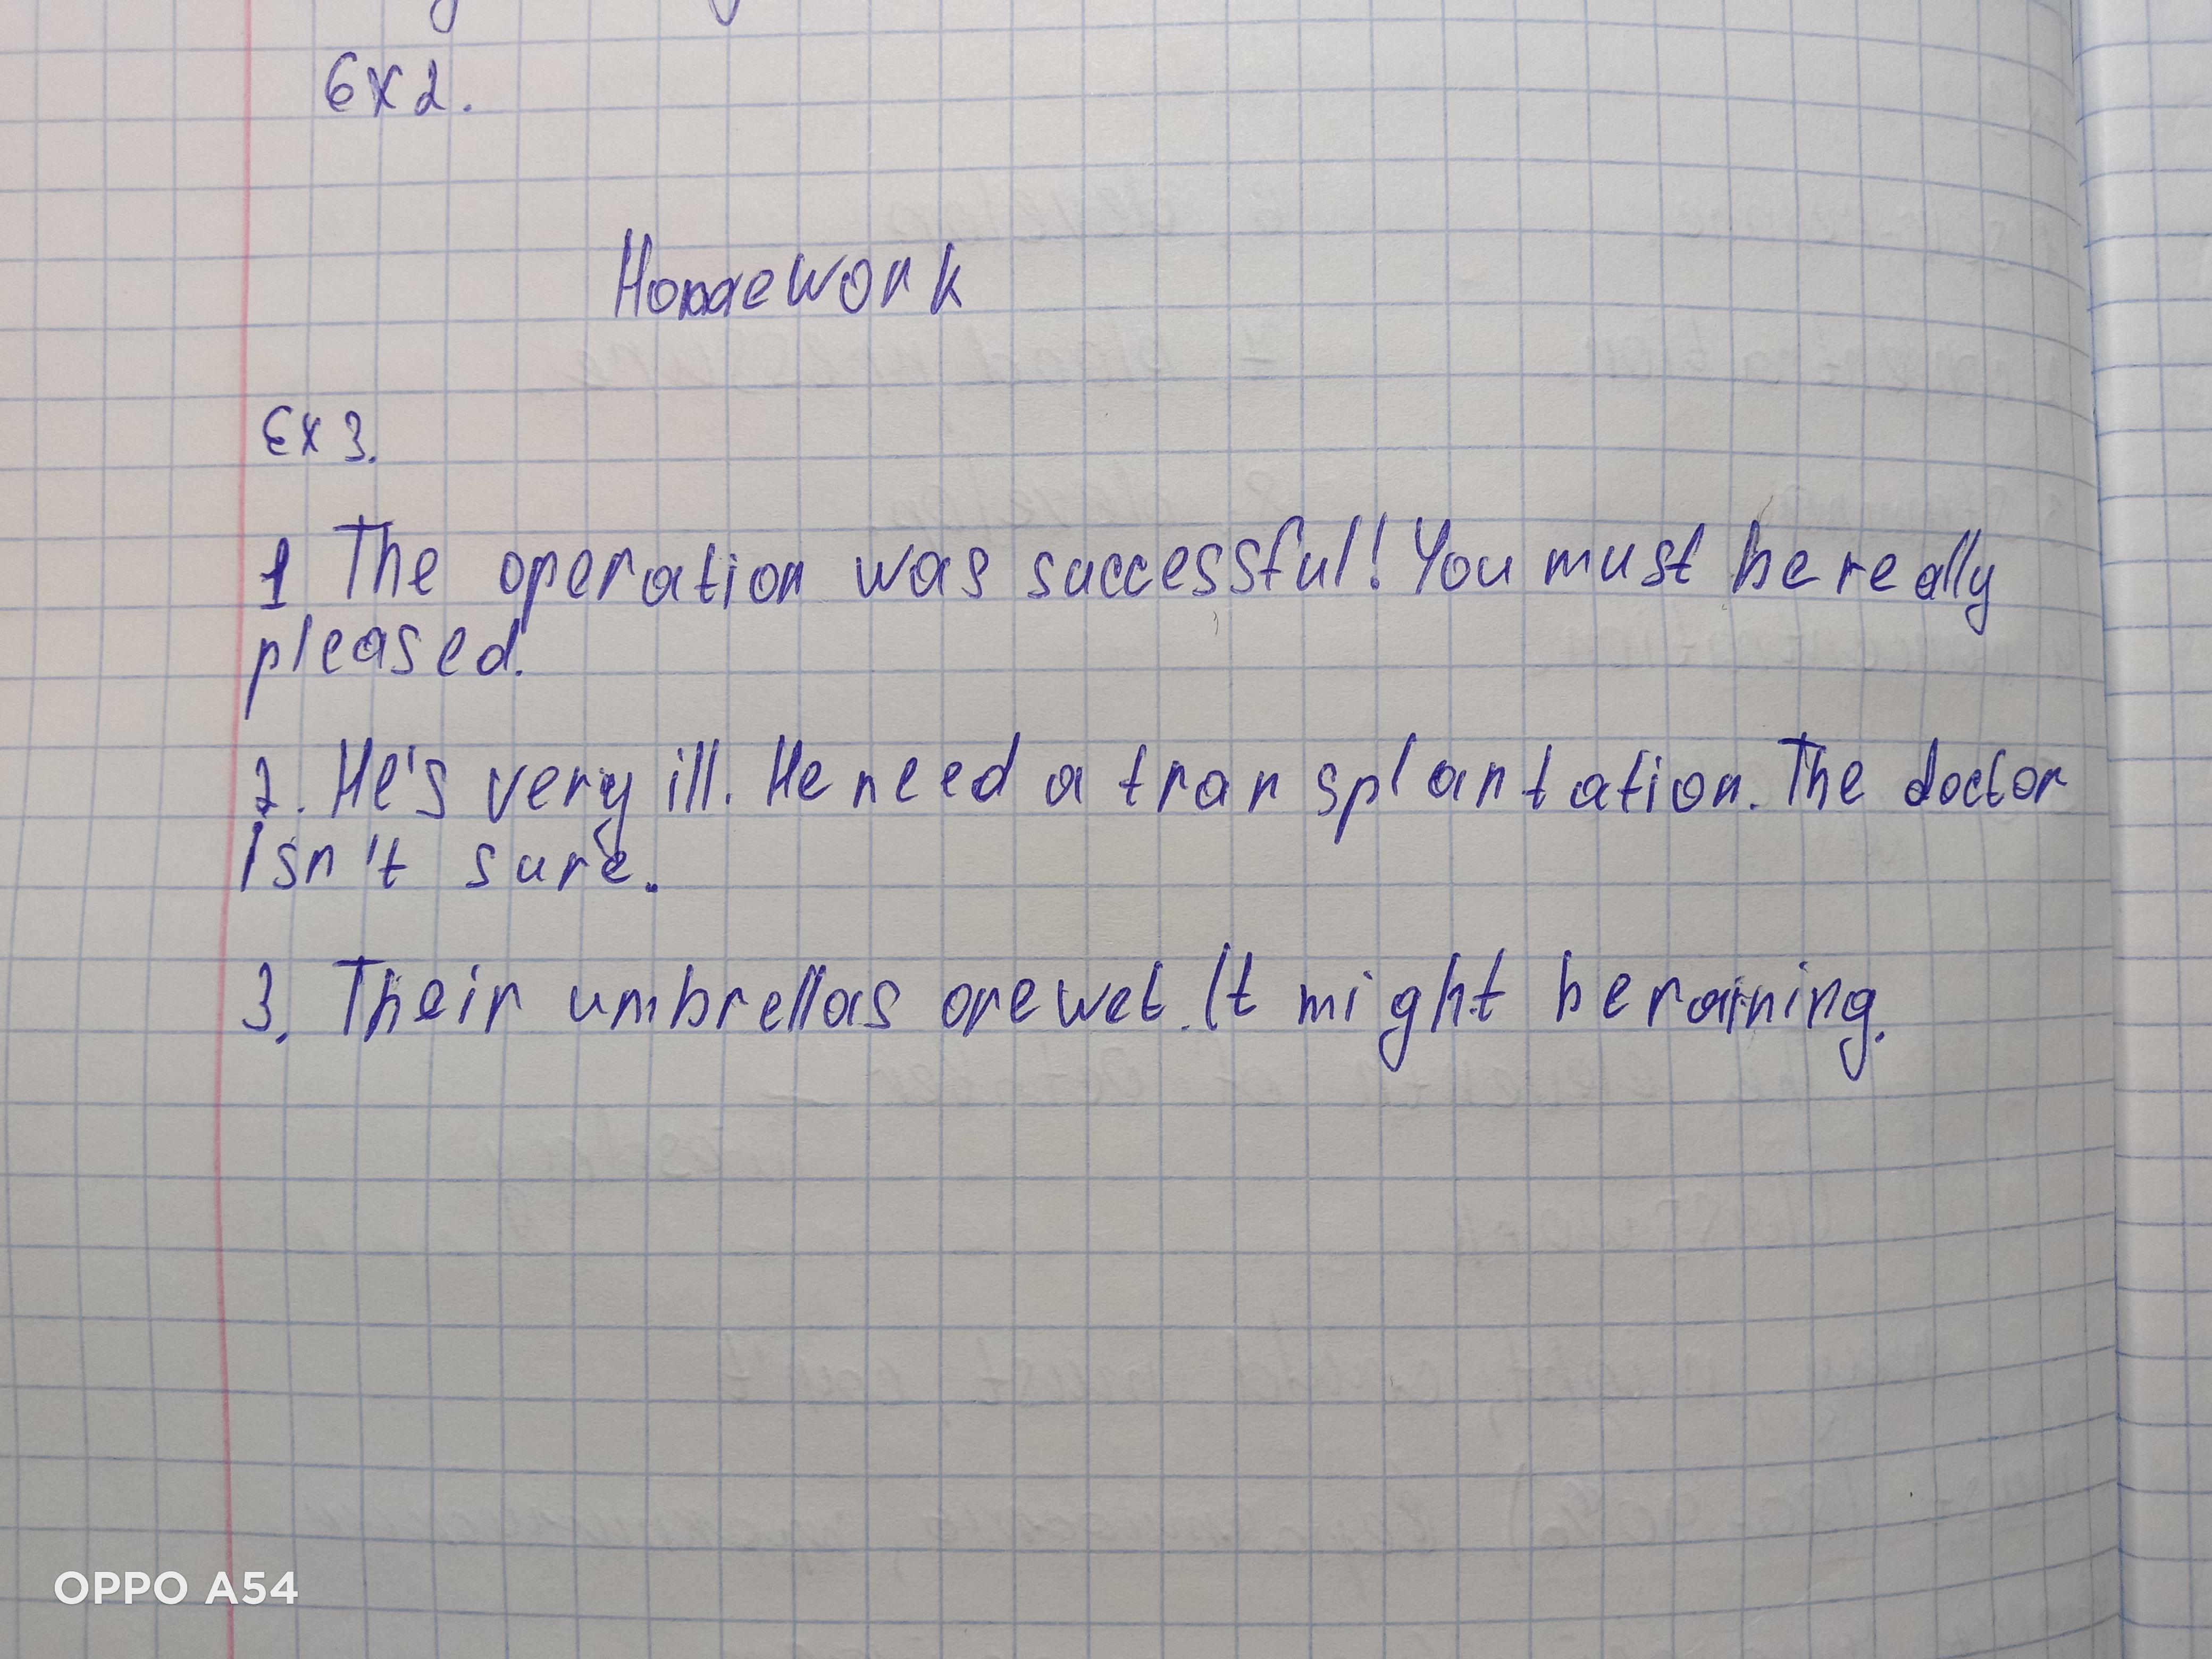 Ex 2.
Homework
Ex 3.
1 The operation was successful! You must be really
pleased.
2. He's very ill. He need a transplantation. The doctor
isn't sure.
3. Their umbrellas are wet. It might be raining.
OPPO A54